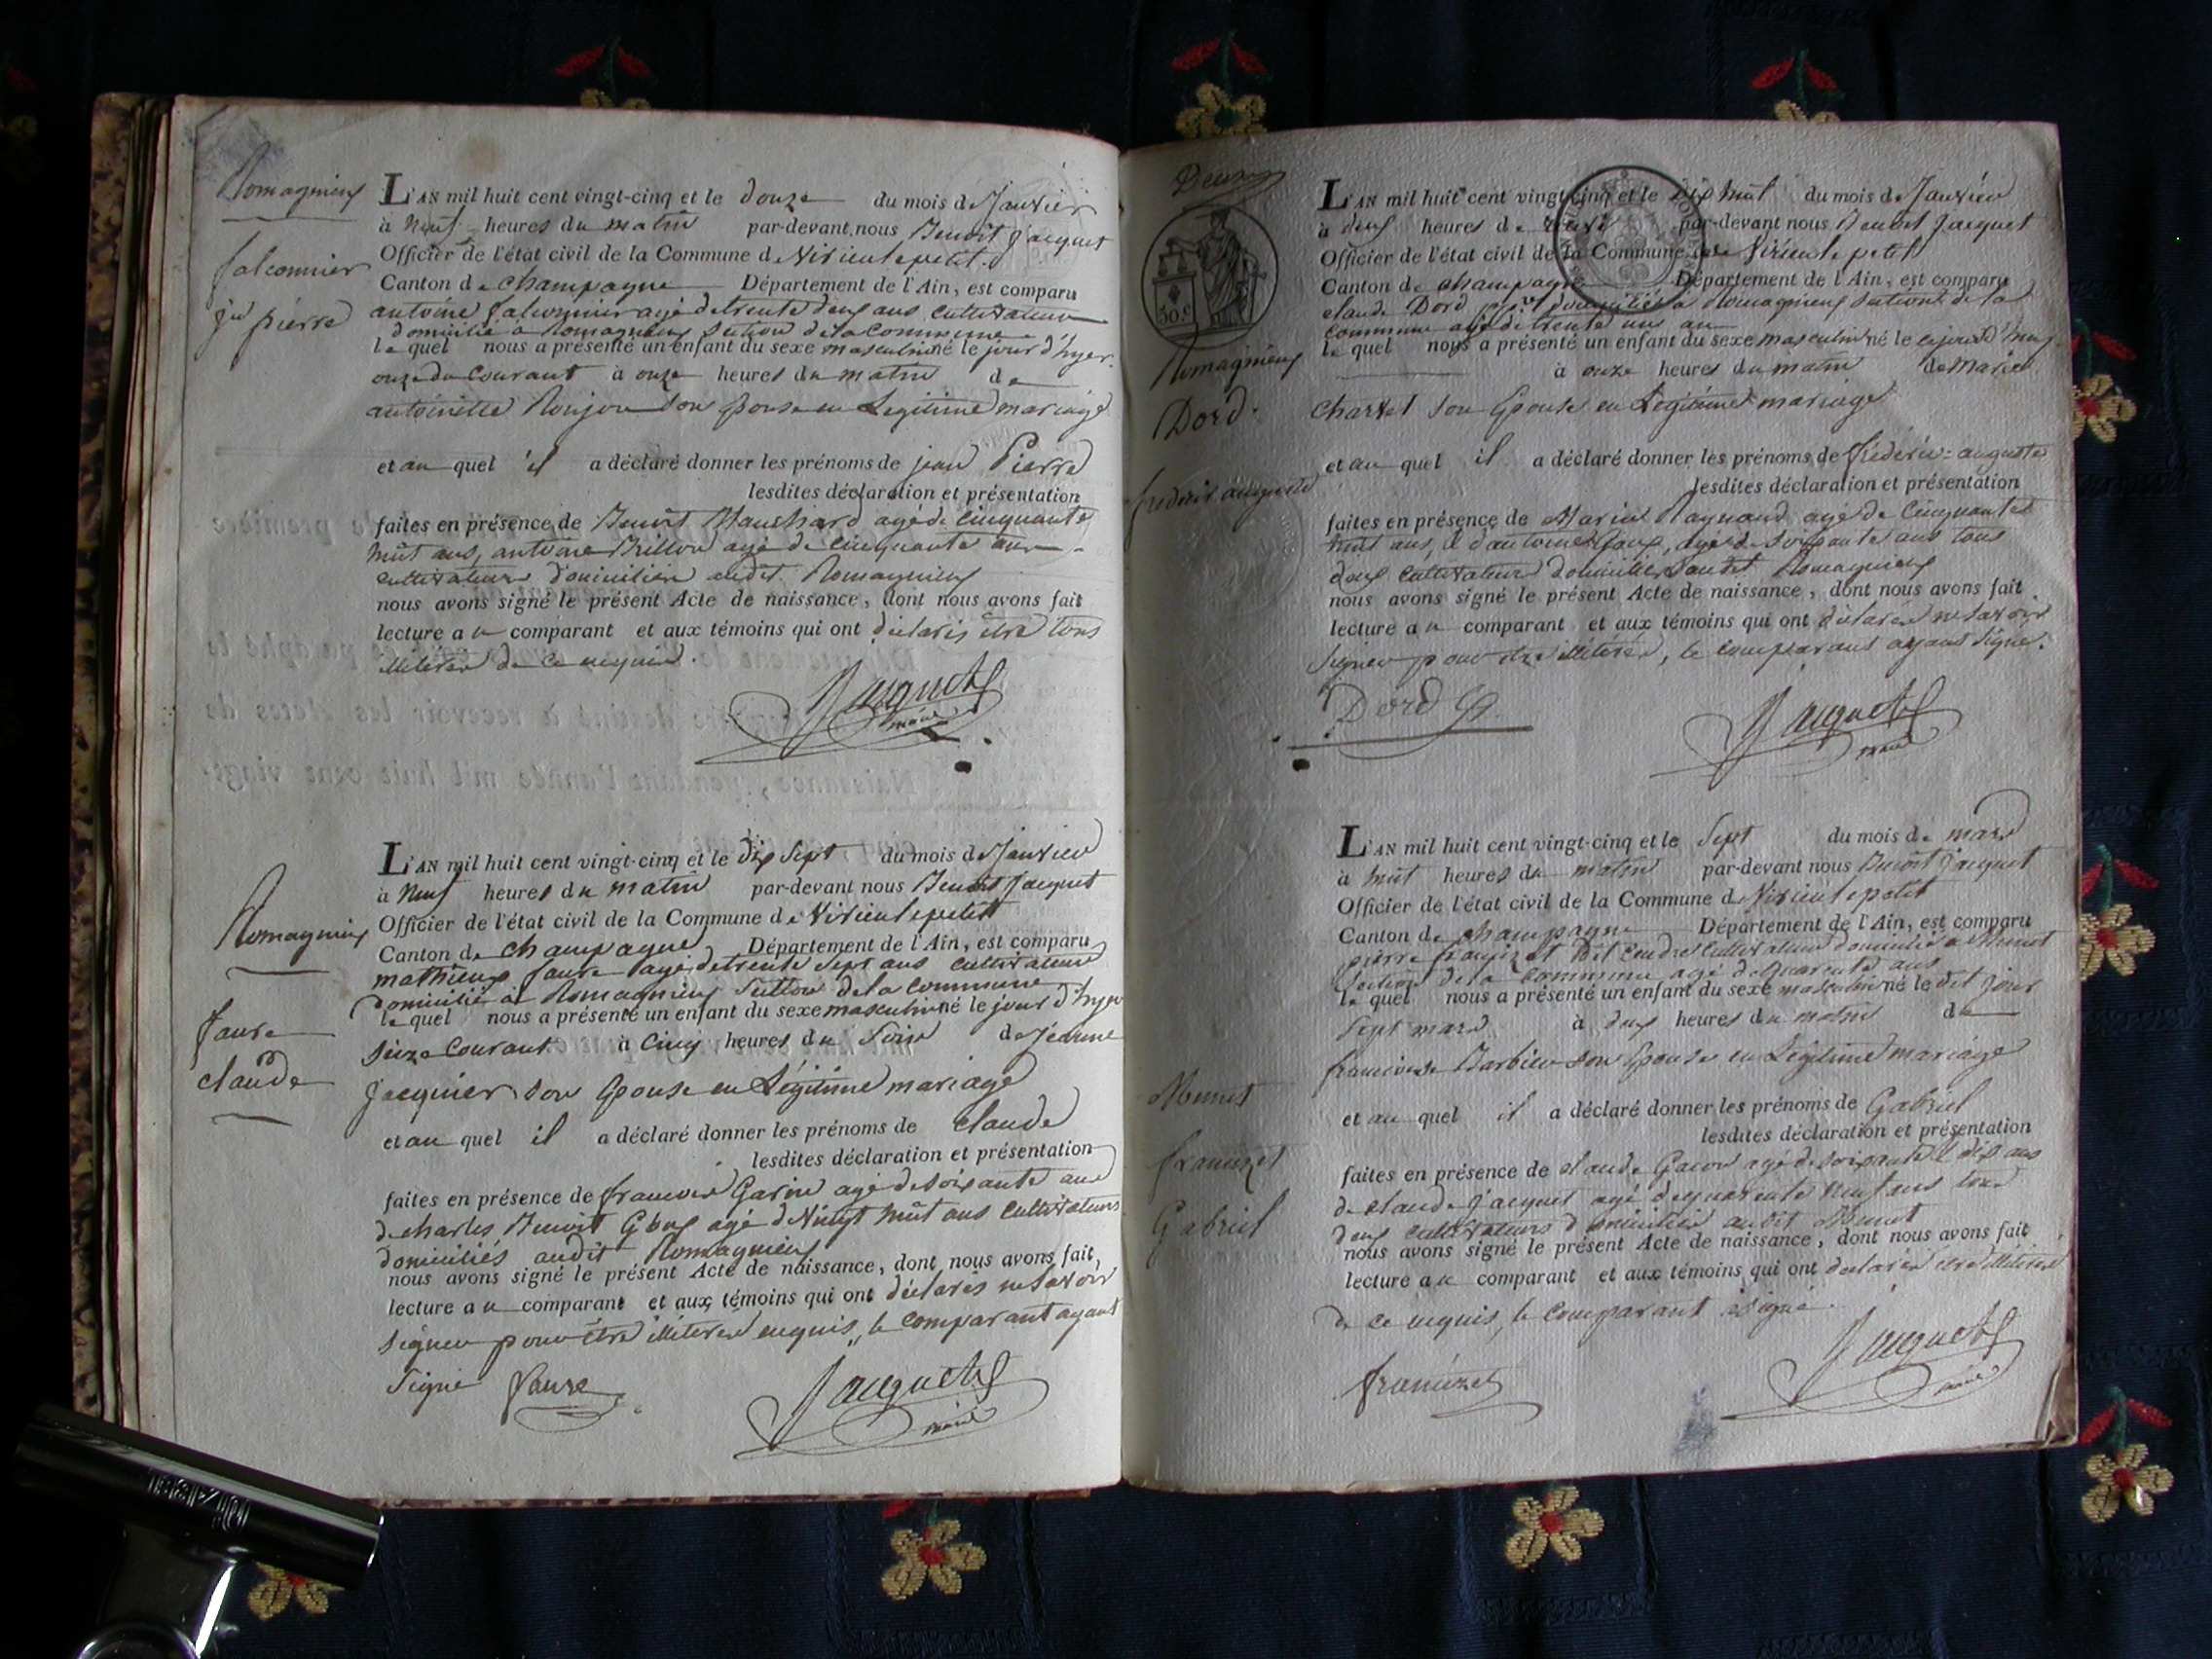 Romagnieux
falconnier
jn pierre
L'AN mil huit cent vingt-cinq et le douze du mois de Janvier
à neuf heures du matin par-devant nous Benoit Jacquet
Officier de l'état civil de la Commune de Virieulepetit
Canton de champagne Département de l'Ain, est comparu
antoine falconnier agé de trente deux ans cultivateur
domicilié a Romagnieux section de la commune
lequel nous a présenté un enfant du sexe masculin né le jour d'hyer
onze du courant à onze heures du matin de
antoinette Roujou son epouse en Legitime mariage
et au quel il a déclaré donner les prénoms de jean Pierre
lesdites déclaration et présentation
faites en présence de Benoit agé de cinquante
huit ans, antoine Brillon agé de cinquante ans
cultivateurs domiciliés audit Romagnieux
nous avons signé le présent Acte de naissance, dont nous avons fait
lecture au comparant et aux témoins qui ont déclarés être tous
illiterés de ce requis.
Jacquet
maire
Romagnieux
faure
claude
L'AN mil huit cent vingt-cinq et le dix sept du mois de Janvier
à neuf heures du matin par-devant nous Benoit Jacquet
Officier de l'état civil de la Commune de Virieulepetit
Canton de champagne Département de l'Ain, est comparu
mathieux faure agé de trente sept ans cultivateur
domicilié à Romagnieux section de la commune
lequel nous a présenté un enfant du sexe masculin né le jour d'hyer
seize courant à cinq heures du soir de jeanne
jacquier son epouse en Légitime mariage
et au quel il a déclaré donner les prénoms de claude
lesdites déclaration et présentation
faites en présence de francois Garin agé de soixante ans
de charles Benoit agé de vingt huit ans cultivateurs
domiciliés audit Romagnieux
nous avons signé le présent Acte de naissance, dont nous avons fait
lecture au comparant et aux témoins qui ont déclarés ne savoir
signer pour être illiterés requis, le comparant ayant
signé faure
Jacquet
maire
Deux
50.c
Romagnieux
Dord.
frederic auguste
L'AN mil huit cent vingt-cinq et le dix huit du mois de Janvier
à deux heures de par-devant nous Benoit Jacquet
Officier de l'état civil de la Commune de Virieulepetit
Canton de champagne Département de l'Ain, est comparu
claude Dord domicilié a Romagnieux section de la
commune agé de trente un an
lequel nous a présenté un enfant du sexe masculin né le cejourd'huy
à onze heures du matin de Marie
charvet son epouse en Legitime mariage
et au quel il a déclaré donner les prénoms de frédéric=auguste
lesdites déclaration et présentation
faites en présence de Marin Raynaud agé de cinquante
huit ans, d'antoine agé de soixante ans tous
deux cultivateurs domiciliés audit Romagnieux
nous avons signé le présent Acte de naissance, dont nous avons fait
lecture au comparant et aux témoins qui ont déclarés ne savoir
signer pour être illiterés, le comparant ayant signé.
Dord
Jacquet
maire
Munet
francizet
Gabriel
L'AN mil huit cent vingt-cinq et le sept du mois de mars
à huit heures du matin par-devant nous Benoit Jacquet
Officier de l'état civil de la Commune de Virieulepetit
Canton de champagne Département de l'Ain, est comparu
pierre francizet dit cultivateur domicilié a Munet
section de la commune agé de quarante ans
lequel nous a présenté un enfant du sexe masculin né le dit jour
sept mars à deux heures du matin de
francoise Barbier son epouse en Légitime mariage
et au quel il a déclaré donner les prénoms de Gabriel
lesdites déclaration et présentation
faites en présence de claude agé de soixante & dix ans
de claude Jacquet agé de quarante neuf ans tous
deux cultivateurs domiciliés audit Munet
nous avons signé le présent Acte de naissance, dont nous avons fait
lecture au comparant et aux témoins qui ont déclarés être illiterés
de ce requis, le comparant a signé.
francizet
Jacquet
maire